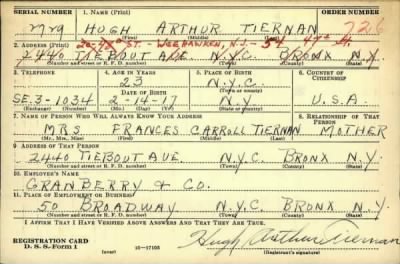 SERIAL NUMBER 1. NAME (Print) ORDER NUMBER
729 HUGH ARTHUR TIERNAN 726
(First) (Middle) (Last)
20-48 ST. - WEEHAWKEN, N.J. - 54
2. ADDRESS (Print)
2440 TIEBOUT AVE. N.Y.C. BRONX N.Y.
(Number and street or R. F. D. number) (Town) (County) (State)
3. TELEPHONE 4. AGE IN YEARS 5. PLACE OF BIRTH 6. COUNTRY OF CITIZENSHIP
23 N.Y.C.
DATE OF BIRTH
SE.3-1034 2-14-17 N.Y. U.S.A.
(Exchange) (Number) (Mo.) (Day) (Yr.) (State or country)
7. NAME OF PERSON WHO WILL ALWAYS KNOW YOUR ADDRESS 8. RELATIONSHIP OF THAT PERSON
MRS FRANCES CARROLL TIERNAN MOTHER
(Mr., Mrs., Miss) (First) (Middle) (Last)
9. ADDRESS OF THAT PERSON
2440 TIEBOUT AVE N.Y.C. BRONX N.Y.
(Number and street or R. F. D. number) (Town) (County) (State)
10. EMPLOYER'S NAME
GRANBERRY & CO.
11. PLACE OF EMPLOYMENT OR BUSINESS
50 BROADWAY N.Y.C. BRONX N.Y.
(Number and street or R. F. D. number) (Town) (County) (State)
I AFFIRM THAT I HAVE VERIFIED ABOVE ANSWERS AND THAT THEY ARE TRUE.
REGISTRATION CARD
D. S. S. Form 1
16-17105
Hugh Arthur Tiernan
(Registrant's signature)